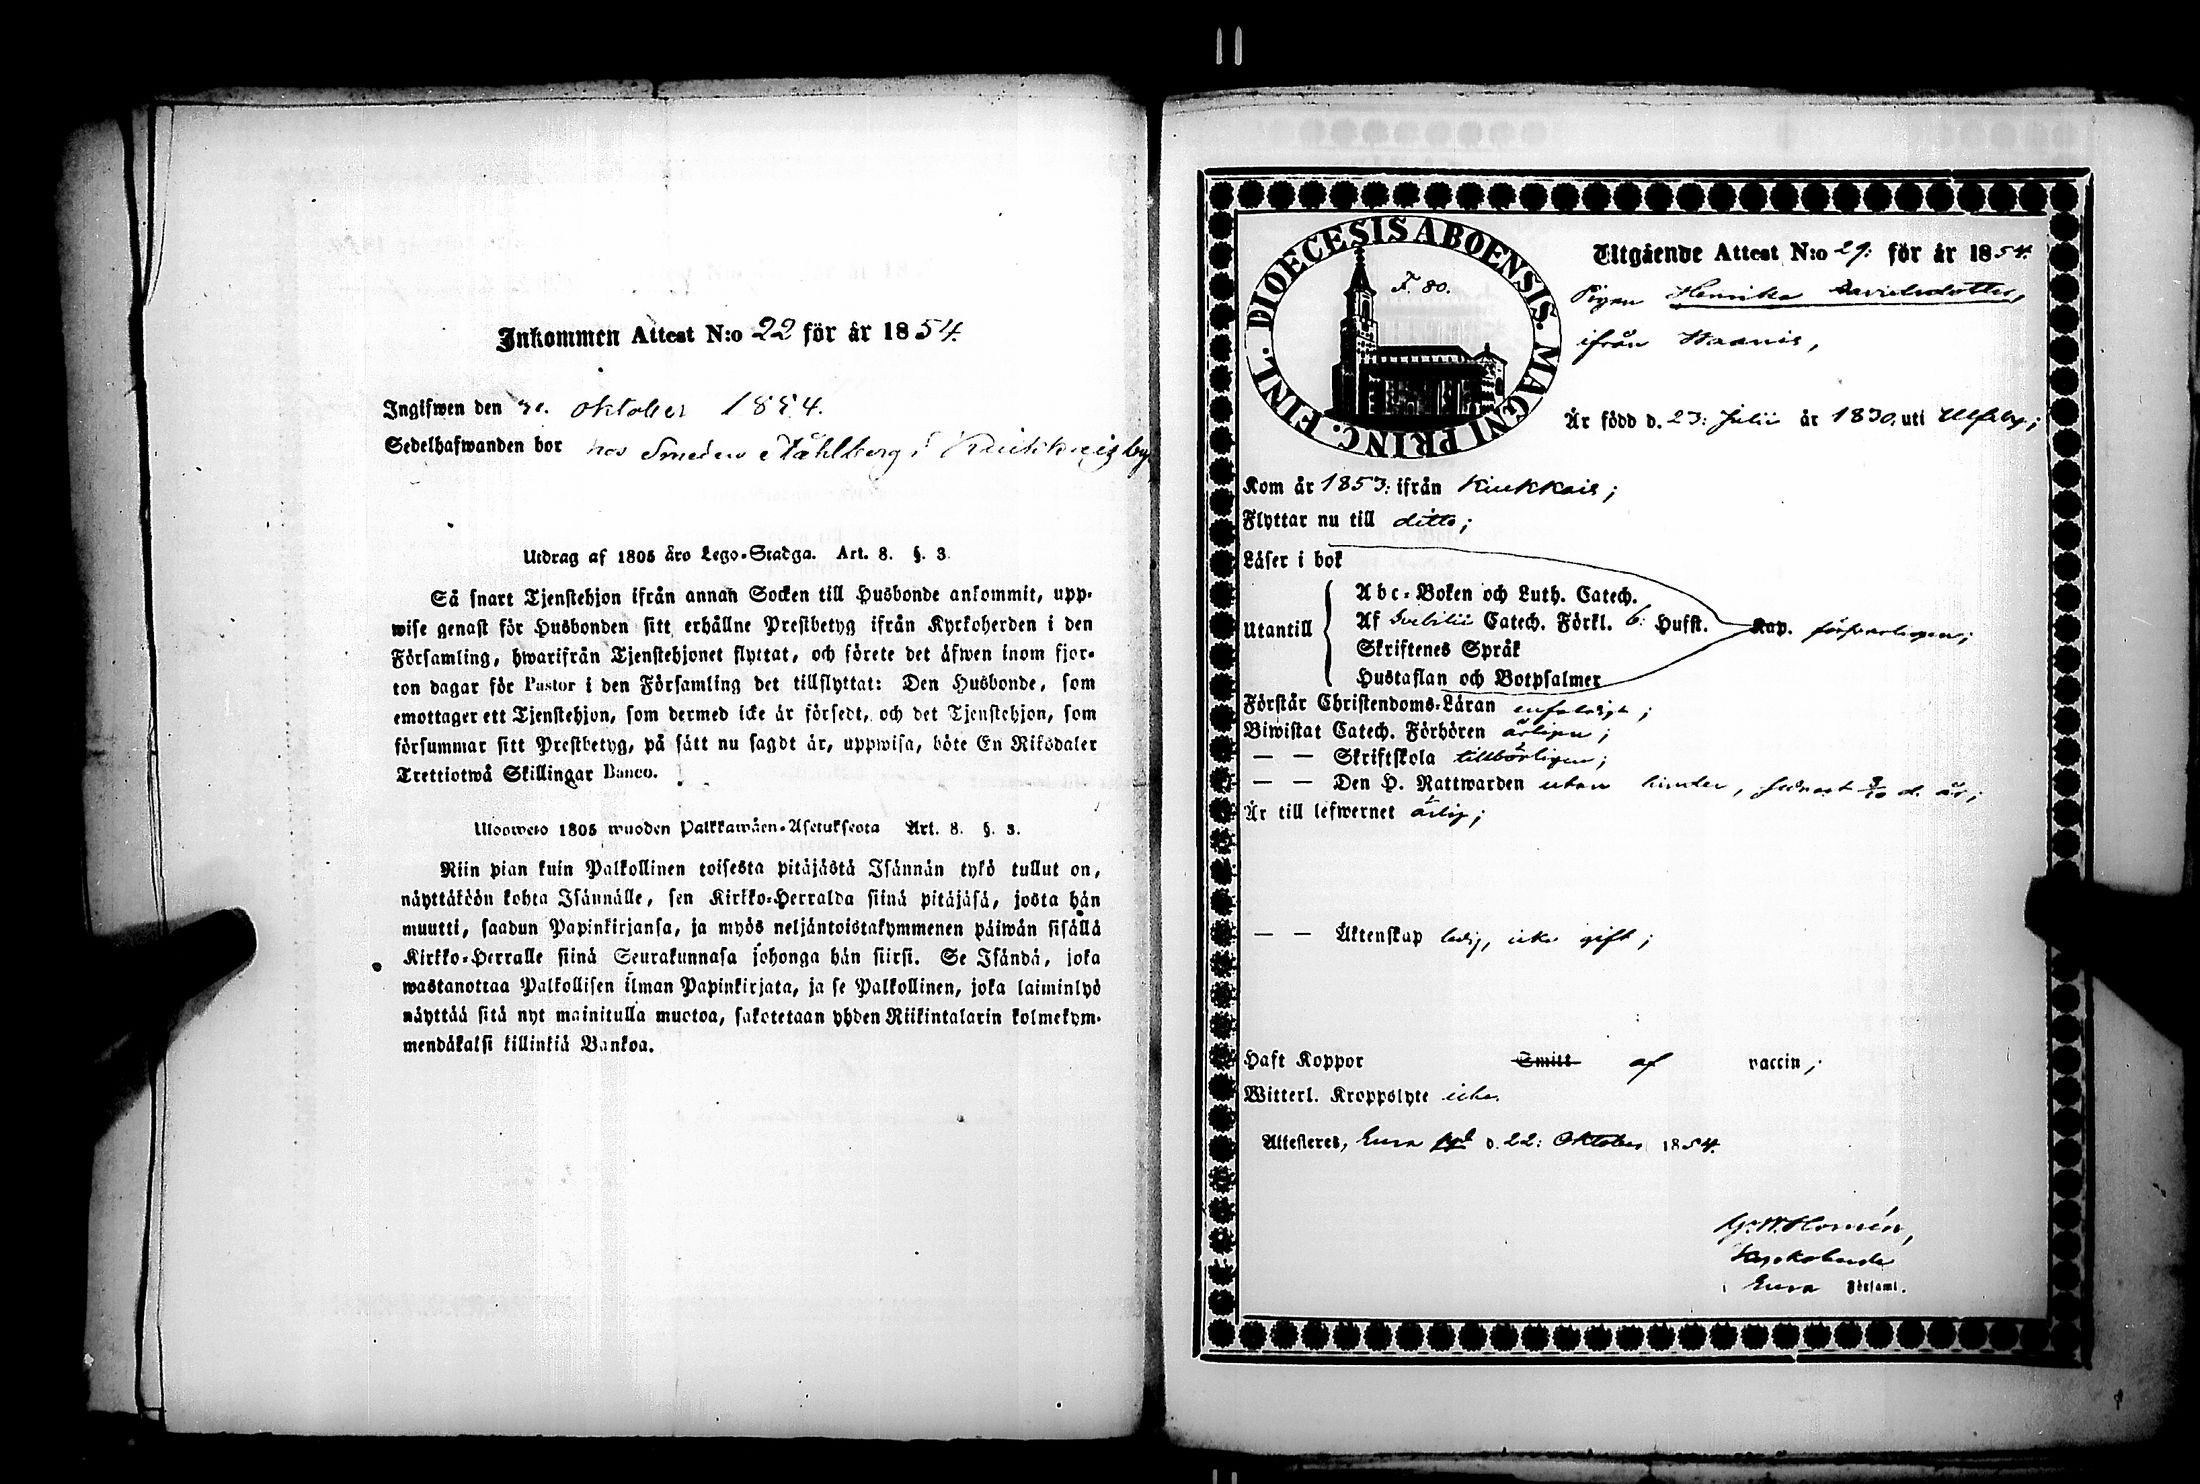 Inkommen Attest N:o 22 för år 1854.
Ingifwen den oktober 1854.
Sedelhafwanden bor hos Smeden Ståhlberg i Kiukkais by
Utdrag af 1805 års Lego-Stadga. Art. 8. §. 3.
Så snart Tjenstehjon ifrån annan Socken till Husbonde ankommit, upp-
wise genast för Husbonden sitt erhållne Prestbetyg ifrån Kyrkoherden i den
Församling, hwarifrån Tjenstehjonet flyttat, och förete det äfwen inom fjor-
ton dagar för Pastor i den Församling det tillflyttat: Den Husbonde, som
emottager ett Tjenstehjon, som dermed icke är försedt, och det Tjenstehjon, som
försummar sitt Prestbetyg, på sätt nu sagdt är, uppwisa, böte En Riksdaler
Trettiotwå Skillingar Banco.
Ulosweto 1805 wuoden Palkkawäen-Asetuksesta Art. 8. §. 3.
Niin pian kuin Palkollinen toisesta pitäjästä Isännän tykö tullut on,
näyttäköön kohta Isännälle, sen Kirkko-Herralda siinä pitäjäsä, josta hän
muutti, saadun Papinkirjansa, ja myös neljäntoistakymmenen päiwän sisällä
Kirkko-Herralle siinä Seurakunnasa johonga hän siirsi. Se Isändä, joka
wastanottaa Palkollisen ilman Papinkirjata, ja se Palkollinen, joka laiminlyö
näyttää sitä nyt mainitulla muotoa, sakotetaan yhden Riikintalarin kolmekym-
mendäkaksi killinkiä Bankoa.
DIOECESIS ABOENSIS. MAGNI PRINC. FINL.
F. 80.
Utgående Attest N:o 29: för år 1854.
Pigan Henrika Davidsdotter,
ifrån Naanis,
Är född d. 23: Julii år 1830. uti Ulfsby;
Kom år 1853: ifrån Kiukkais;
Flyttar nu till ditto;
Läser i bok
Utantill
Abc-Boken och Luth. Catech.
Af Svebilii Catech. Förkl. 6: Hufst. Kap. försvarligen;
Skriftenes Språk
Hustaflan och Botpsalmer
Förstår Christendoms-Läran enfaldigt;
Biwistat Catech. Förhören årligen;
— — Skriftskola tillbörligen;
— — Den H. Nattwarden utan hinder, sednast d. år;
Är till lefwernet ärlig;
— — Äktenskap ledig, icke gift;
Haft Koppor Smitt af vaccin;
Witterl. Kroppslyte icke.
Attesteres, Eura d. 22: Oktober 1854.
G. W. Homén,
Kyrkoherde
i Eura Församl.